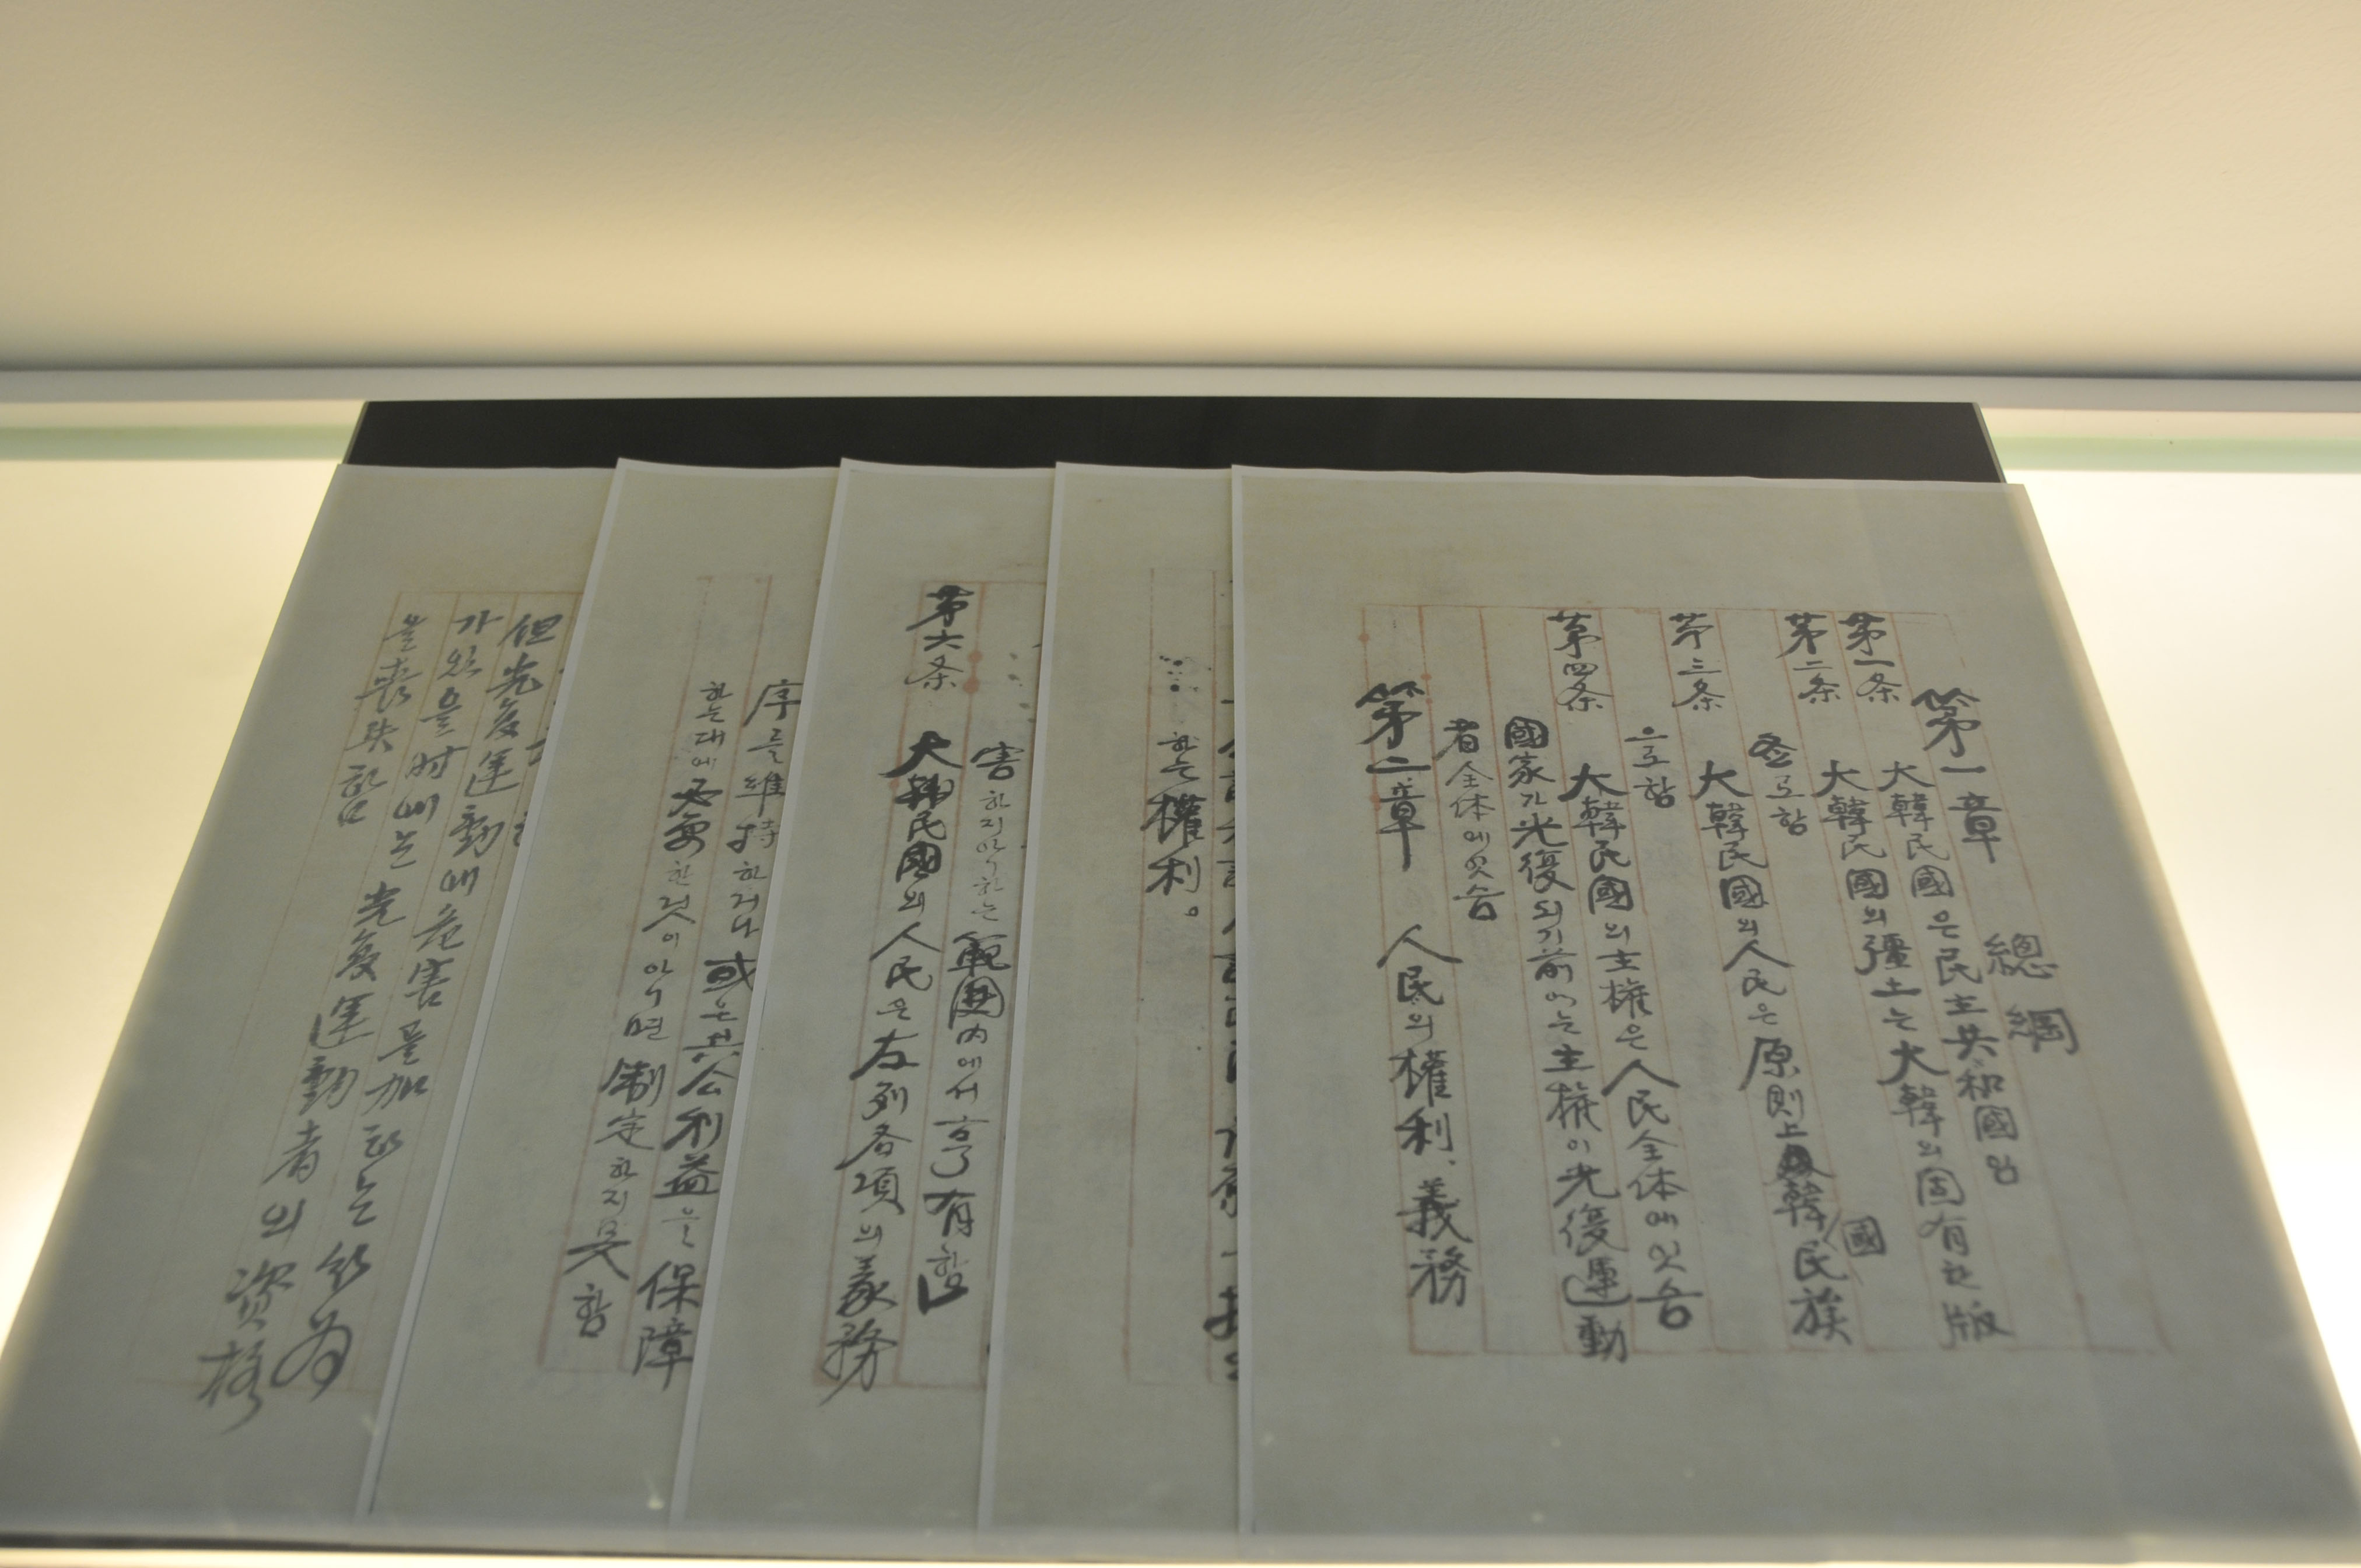 第一章 總綱
第一条 大韓民國은民主共和國임
第二条 大韓民國의疆土는大韓의固有한版
圖로함
第三条 大韓民國의人民은原則上韓國民族
으로함
第四条 大韓民國의主權은人民全体에잇슴
國家가光復되기前에는主權이光復運動
者全体에잇슴
第二章 人民의權利、義務
하는權利。
害하지안이하는範圍內에서享有함
第六条 大韓民國의人民은左列各項의義務
序를維持하거나或은共公利益을保障
하는대에必要한것이안이면制定하지못함
但光复運動에危害를加하는行为
가있을时에는光复運動者의资格
을喪失함